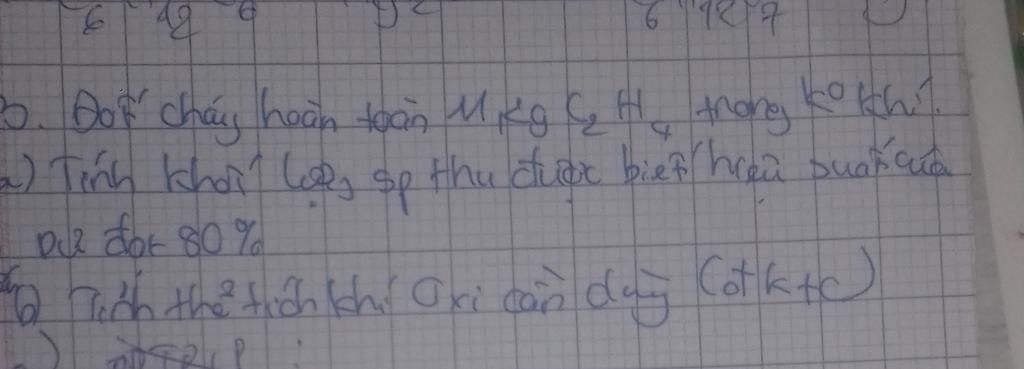 6 12 6 6 12 7
3. Đốt cháy hoàn toàn M Kg C2 H4 trong kº khí.
a) Tính khối lợg sp thu được biết hiệu suất của
pứ đạt 80%
b) Tính thể tích khí Oxi cần dùg (đktc)